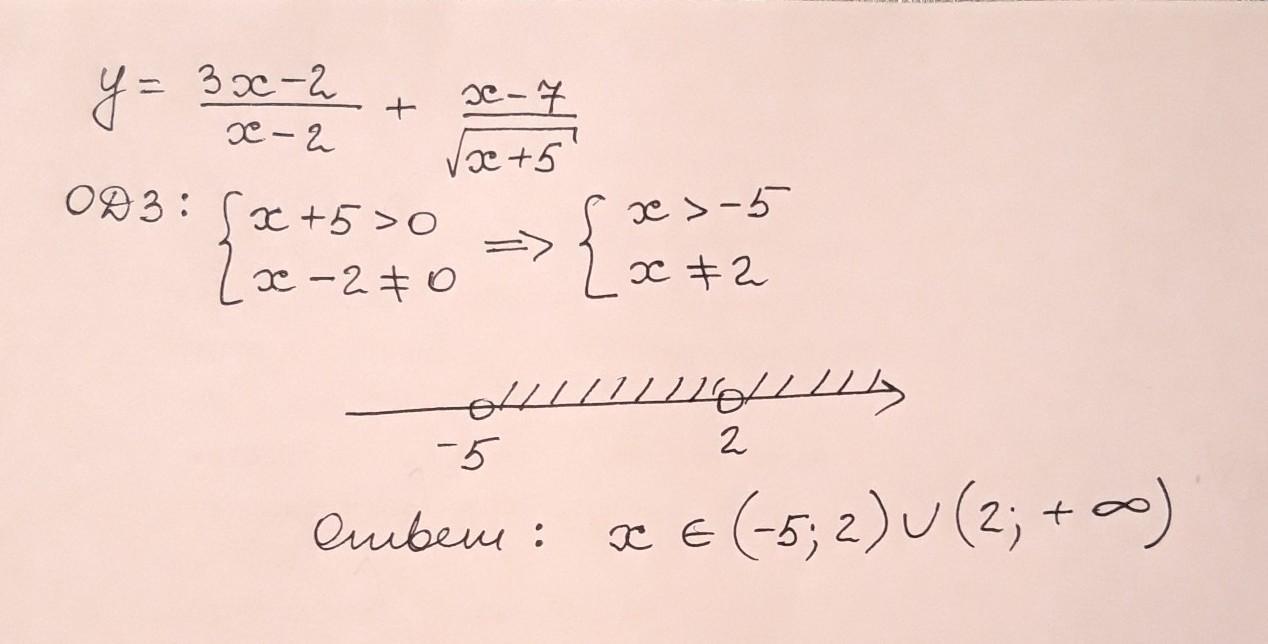 y = \frac{3x-2}{x-2} + \frac{x-7}{\sqrt{x+5}}
ОДЗ: { x+5>0 ; x-2≠0 ⇒ { x>-5 ; x≠2
-5 2
Ответ: x ∈ (-5; 2) ∪ (2; +∞)